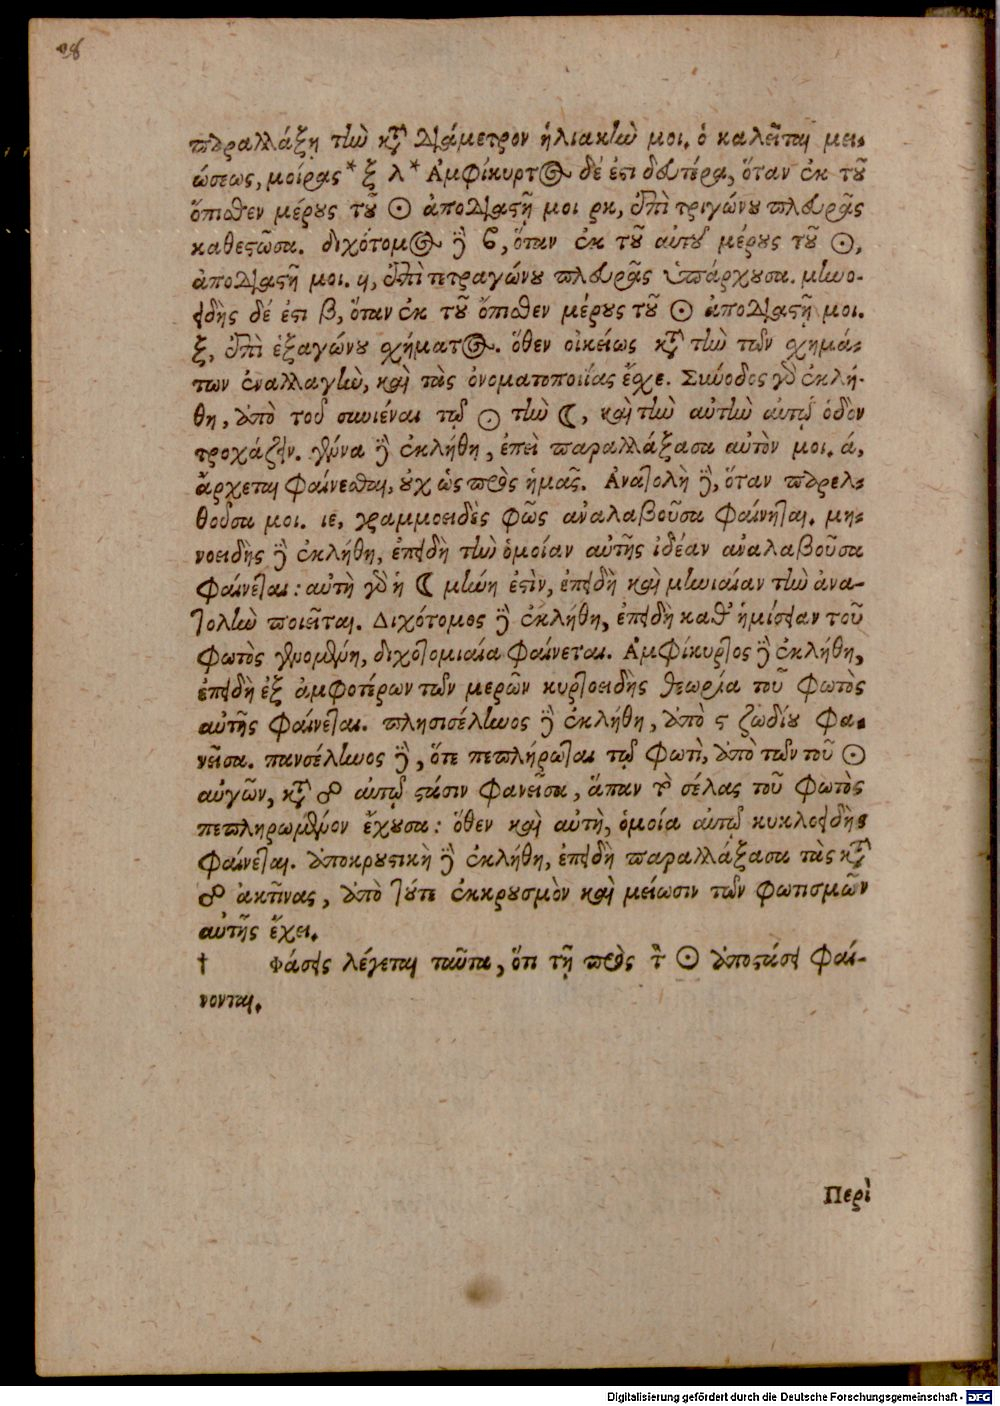 28
παραλλάξῃ τὴν κτ διάμετρον ἡλιακὴν μοι. ὁ καλεῖται μει-
ώσεως, μοίρας * ξ λ * Ἀμφίκυρτος δέ ἐστι δευτέρα, ὅταν ἐκ τοῦ
ὄπισθεν μέρους τοῦ ☉ ἀποδιαστῇ μοι ρκ, ἐπὶ τριγώνου πλευρᾶς
καθεστῶσα. διχότομος ἢ ϐ, ὅταν ἐκ τοῦ αὐτοῦ μέρους τοῦ ☉,
ἀποδιαστῇ μοι. ϟ, ἐπὶ τετραγώνου πλευρᾶς ὑπάρχουσα. μηνο-
ειδὴς δέ ἐστι β, ὅταν ἐκ τοῦ ὄπισθεν μέρους τοῦ ☉ ἀποδιαστῇ μοι.
ξ, ἐπὶ ἑξαγώνου σχήματος. ὅθεν οἰκείως κτ τὴν τῶν σχημά-
των ἐναλλαγὴν, καὶ τὰς ὀνοματοποιΐας ἔσχε. Σύνοδος γὸ ἐκλή-
θη, ἀπὸ τοῦ συνιέναι τῷ ☉ τὴν ☾, καὶ τὴν αὐτὴν αὐτῷ ὁδὸν
τροχάζειν. γέννα δὲ ἐκλήθη, ἐπεὶ παραλλάξασα αὐτὸν μοι. ά,
ἄρχεται φαίνεσθαι, οὐχ ὡς πρὸς ἡμᾶς. Ἀνατολὴ δὲ, ὅταν παρελ-
θοῦσα μοι. ιε, γραμμοειδὲς φῶς ἀναλαβοῦσα φαίνηται. μη-
νοειδὴς δὲ ἐκλήθη, ἐπειδὴ τὴν ὁμοίαν αὐτῆς ἰδέαν ἀναλαβοῦσα
φαίνεται: αὐτὴ γὸ ἡ ☾ μήνη ἐστὶν, ἐπειδὴ καὶ μηνιαίαν τὴν ἀνα-
τολὴν ποιεῖται. Διχότομος δὲ ἐκλήθη, ἐπειδὴ καθ' ἡμίσειαν τοῦ
φωτὸς γενομένη, διχοτομιαία φαίνεται. Ἀμφίκυρτος δὲ ἐκλήθη,
ἐπειδὴ ἐξ ἀμφοτέρων τῶν μερῶν κυρτοειδὴς θεωρία τοῦ φωτὸς
αὐτῆς φαίνεται. πλησισέληνος δὲ ἐκλήθη, ἀπὸ ϛ ζωδίου φα-
νεῖσα. πανσέληνος δὲ, ὅτε πεπλήρωται τῷ φωτὶ, ἀπὸ τῶν τοῦ ☉
αὐγῶν, κτ ☍ αὐτῷ στάσιν φανεῖσα, ἅπαν τὸ σέλας τοῦ φωτὸς
πεπληρωμένον ἔχουσα: ὅθεν καὶ αὐτὴ, ὁμοία αὐτῷ κυκλοειδὴς
φαίνεται. ἀποκρουστικὴ δὲ ἐκλήθη, ἐπειδὴ παραλλάξασα τὰς κτ
☍ ἀκτῖνας, ἀπὸ τούτε ἐκκρουσμὸν καὶ μείωσιν τῶν φωτισμῶν
αὐτῆς ἔχει.
† Φάσεις λέγεται ταῦτα, ὅτι τῇ πρὸς τὸν ☉ ἀποστάσει φαί-
νονται.
Περὶ
Digitalisierung gefördert durch die Deutsche Forschungsgemeinschaft - DFG